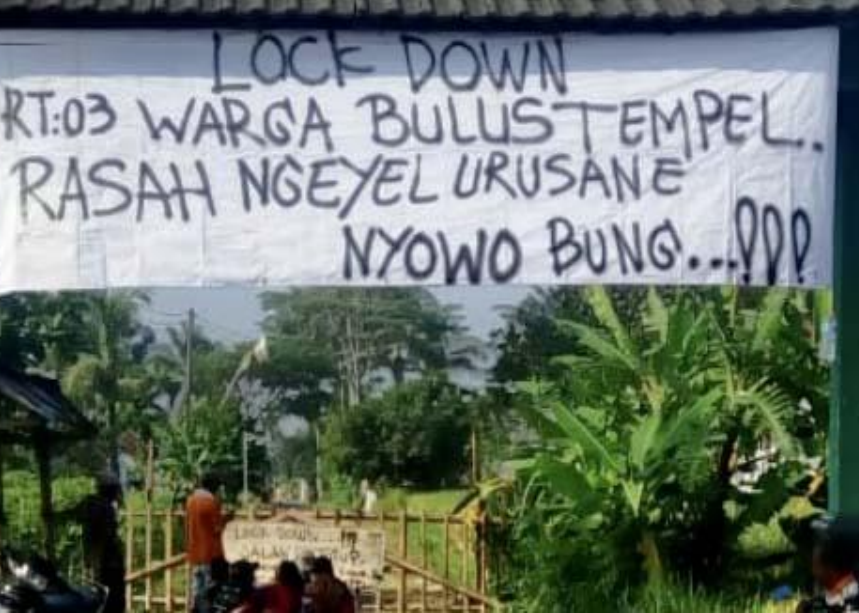 LOCK DOWN
RT:03 WARGA BULUS TEMPEL..
RASAH NGEYEL URUSANE
NYOWO BUNG...!!!
LOCK DOWN
JALAN